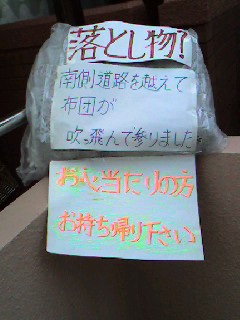 落とし物?
南側道路を越えて
布団が
吹っ飛んで参りました
お心当たりの方
お持ち帰り下さい